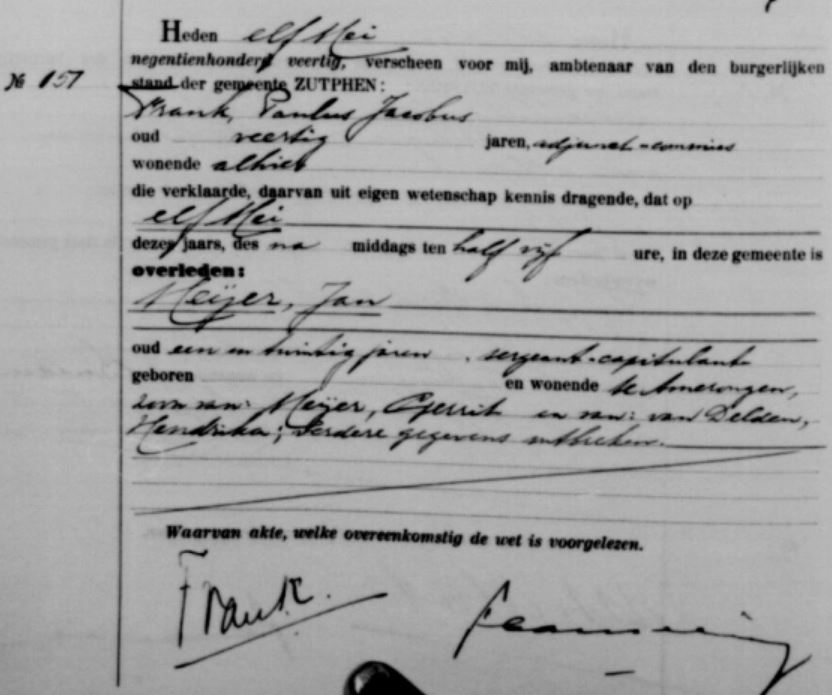 Heden elf Mei
negentienhonderd veertig, verscheen voor mij, ambtenaar van den burgerlijken
№ 151 stand der gemeente ZUTPHEN:
Frank, Paulus Jacobus
oud veertig jaren, adjunct-commies
wonende alhier
die verklaarde, daarvan uit eigen wetenschap kennis dragende, dat op
elf Mei
dezes jaars, des na middags ten half vijf ure, in deze gemeente is
overleden:
Meijer, Jan
oud een en twintig jaren, sergeant-capitulant
geboren en wonende te Amerongen,
zoon van: Meijer, Gerrit en van: van Delden,
Hendrika; verdere gegevens ontbreken.
Waarvan akte, welke overeenkomstig de wet is voorgelezen.
Frank.